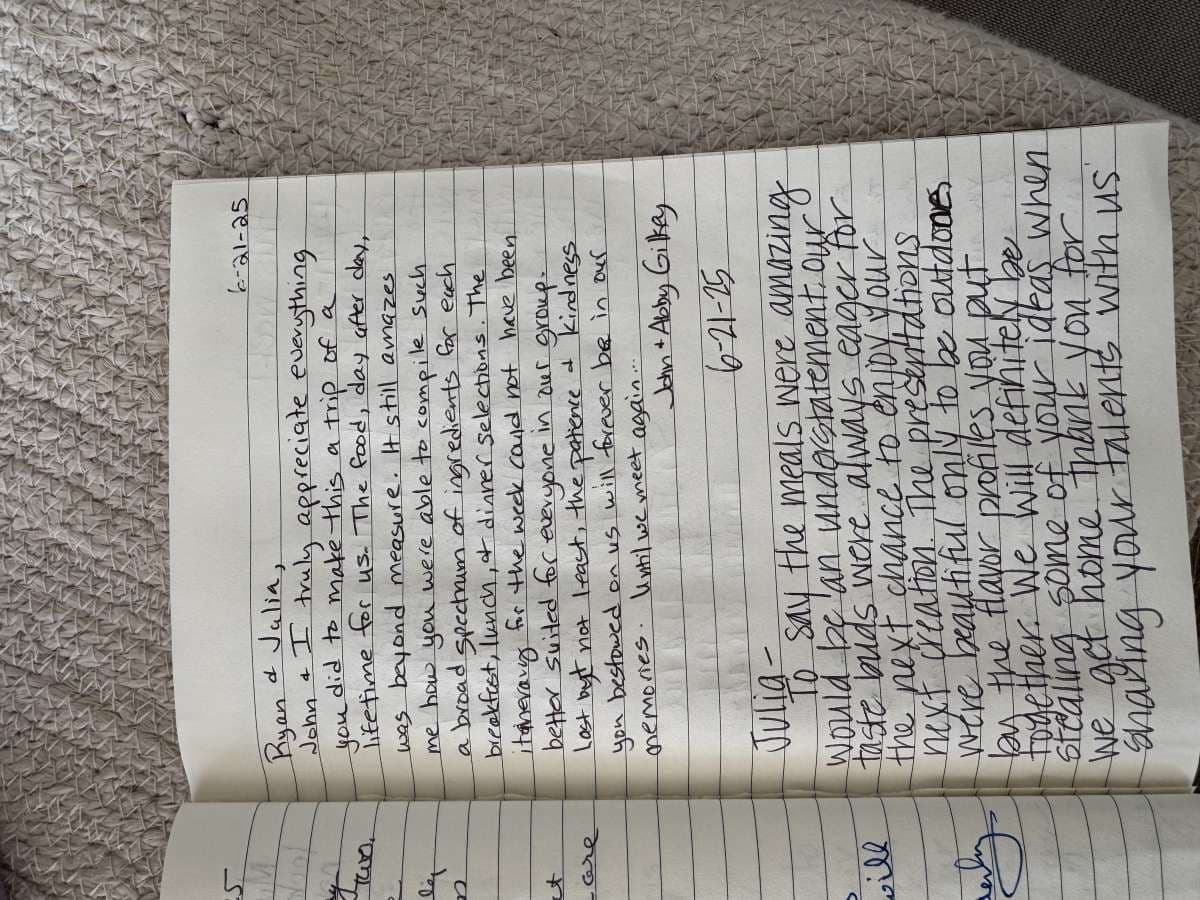 6-21-25
Ryan & Julia,
John & I truly appreciate everything
you did to make this a trip of a
lifetime for us. The food, day after day,
was beyond measure. It still amazes
me how you were able to compile such
a broad spectrum of ingredients for each
breakfast, lunch, & dinner selections. The
itinerary for the week could not have been
better suited for everyone in our group.
Last but not least, the patience & kindness
you bestowed on us will forever be in our
memories. Until we meet again...
John & Abby Gilkay
6-21-25
Julia -
To say the meals were amazing
would be an understatement. Our
taste buds were always eager for
the next chance to enjoy your
next creation. The presentations
were beautiful only to be outdone
by the flavor profiles you put
together. We will definitely be
stealing some of your ideas when
we get home. Thank you for
sharing your talents with us
5
run.
care
will